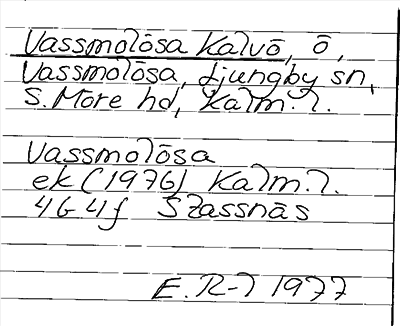 Vassmolösa Kalvö, ö,
Vassmolösa, Ljungby sn,
S. Möre hd, Kalm. l.
Vassmolösa
ek (1976) Kalm. l.
4G 4f Stassnäs
E. R-l 1977